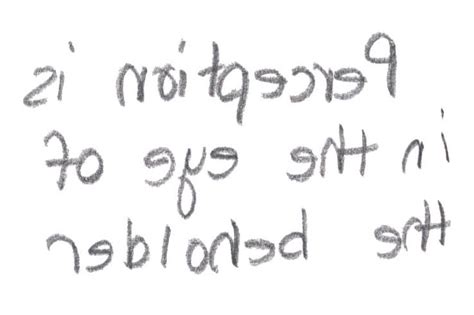 Perception is
in the eye of
the beholder